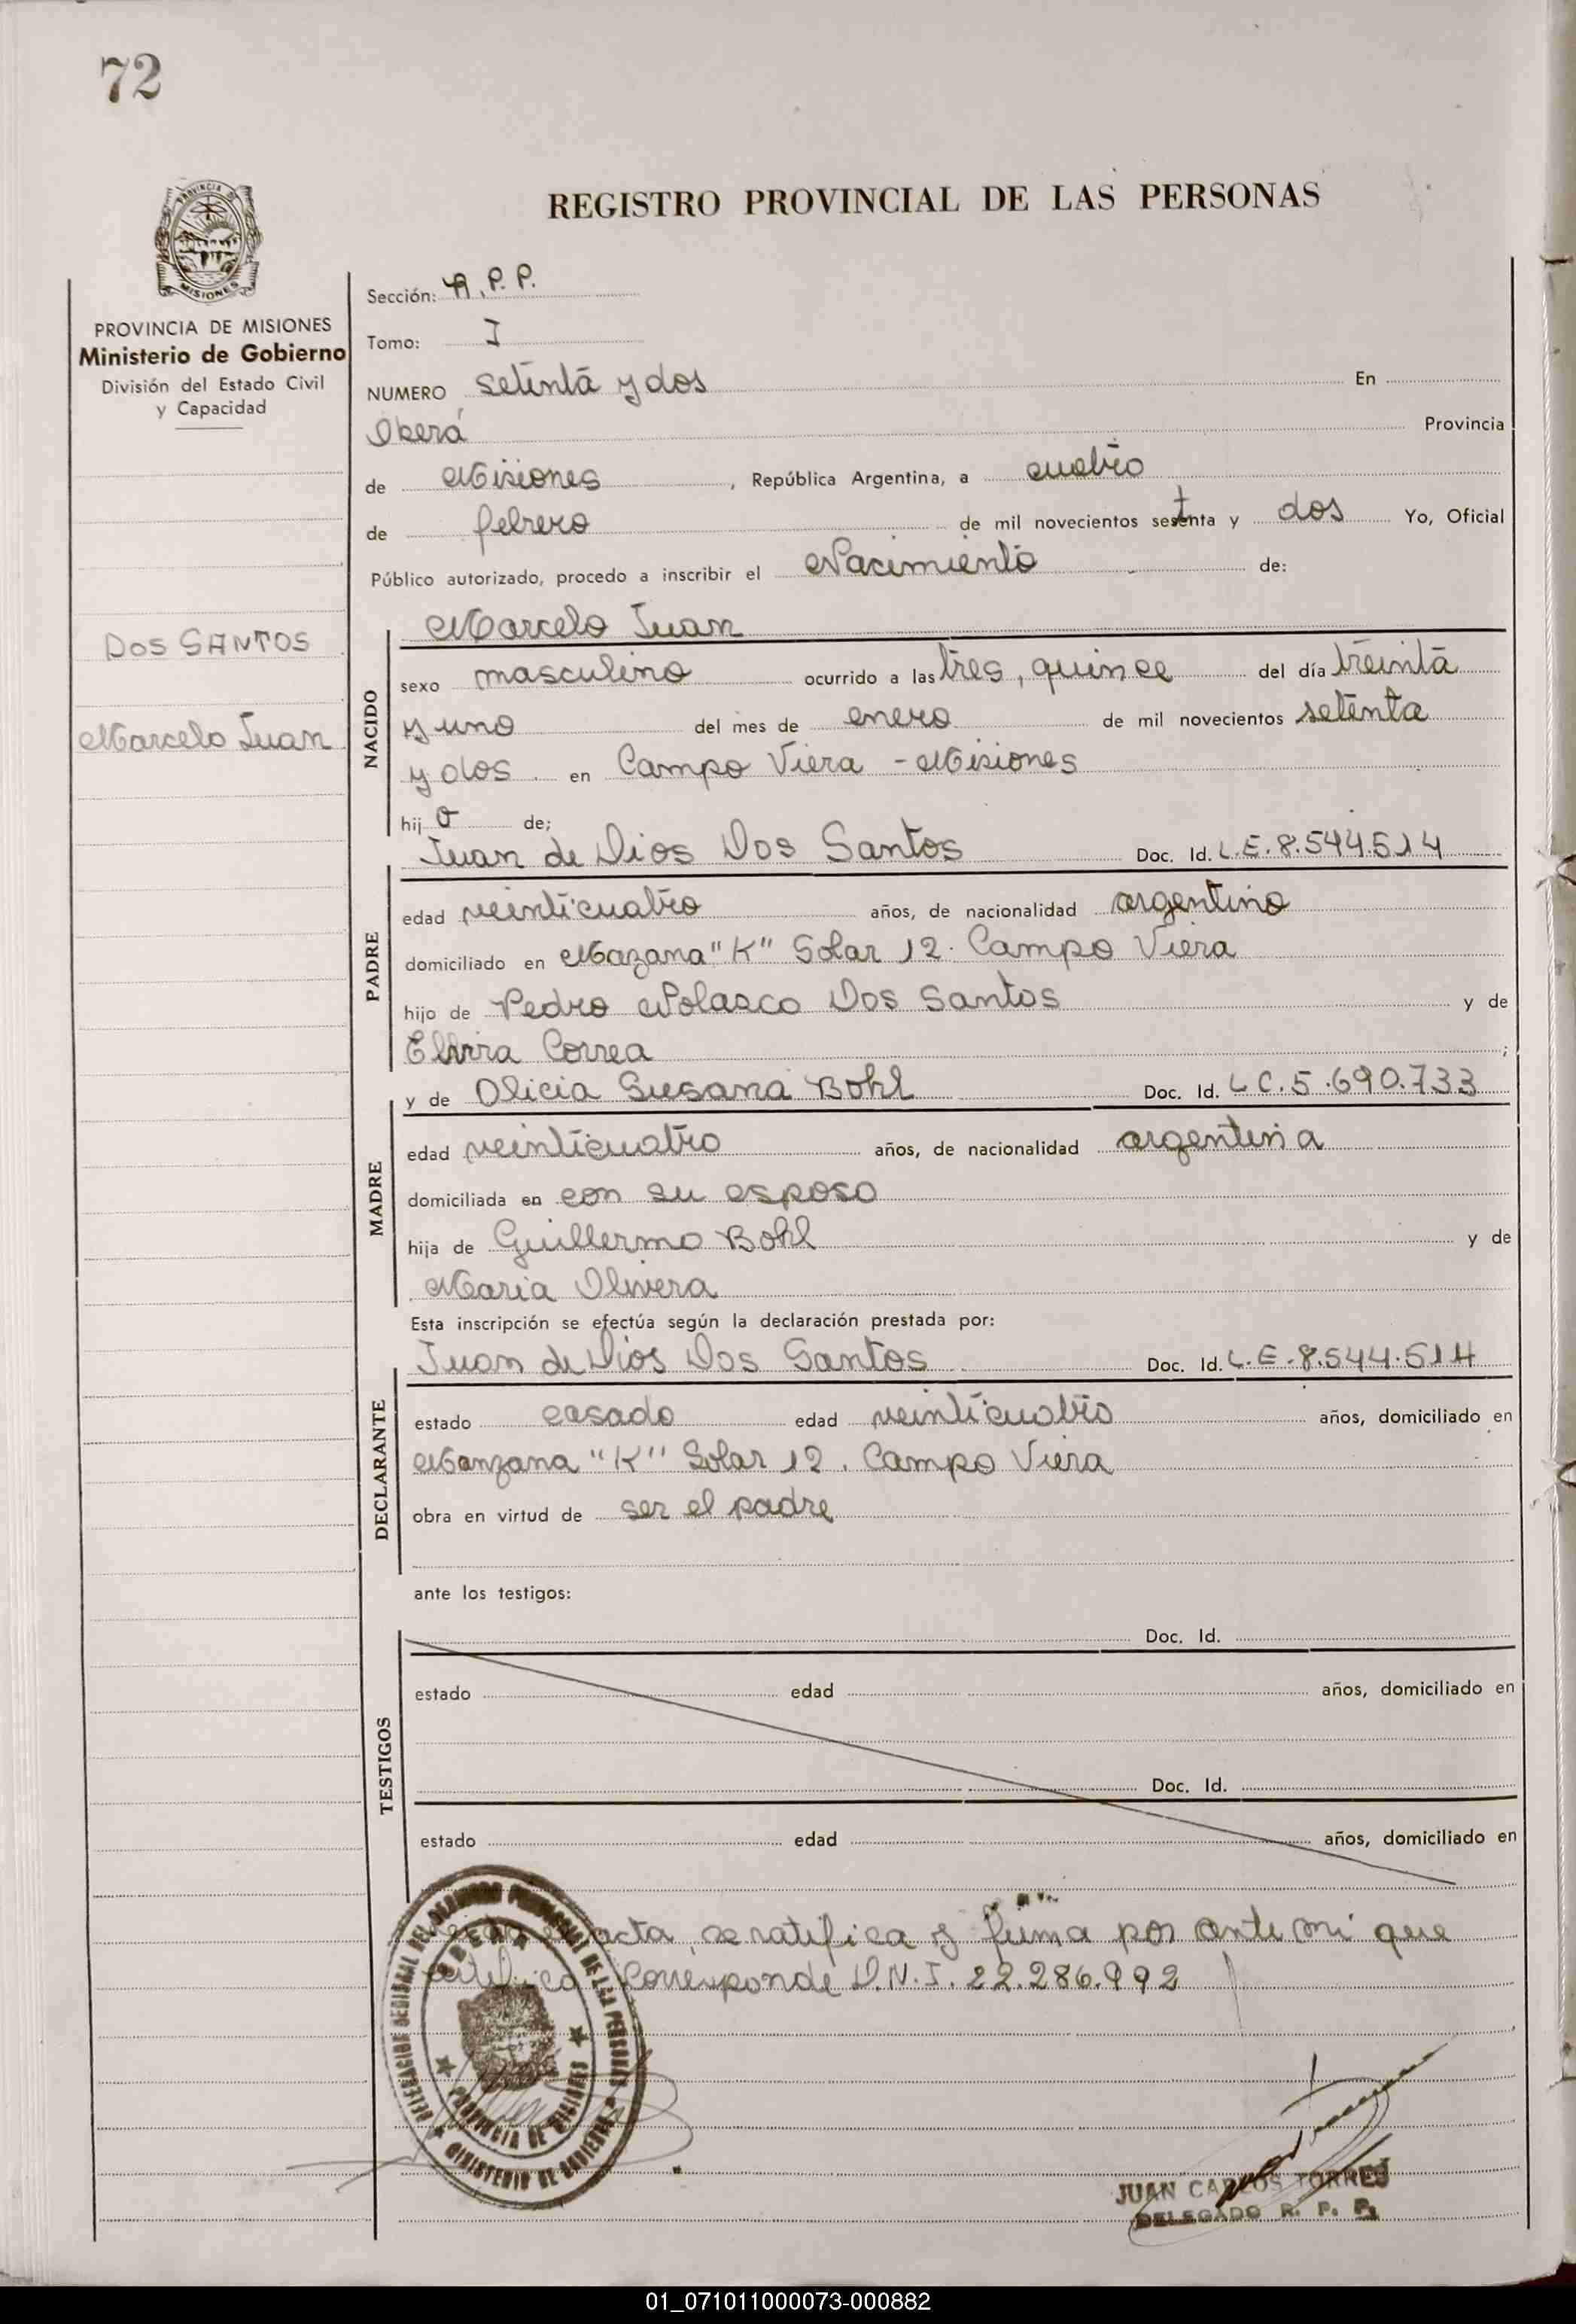 72
PROVINCIA DE MISIONES
Ministerio de Gobierno
División del Estado Civil
y Capacidad
DOS SANTOS
Marcelo Juan
REGISTRO PROVINCIAL DE LAS PERSONAS
Sección: R.P.P.
Tomo: I
NUMERO setenta y dos En
Oberá Provincia
de Misiones, República Argentina, a cuatro
de febrero de mil novecientos setenta y dos Yo, Oficial
Público autorizado, procedo a inscribir el Nacimiento de:
Marcelo Juan
NACIDO
sexo masculino ocurrido a las tres, quince del día treinta
y uno del mes de enero de mil novecientos setenta
y dos en Campo Viera - Misiones
hijo de;
Juan de Dios Dos Santos Doc. Id. L.E. 8.544.514
PADRE
edad veinticuatro años, de nacionalidad argentino
domiciliado en Mazana "K" Solar 12. Campo Viera
hijo de Pedro Nolasco Dos Santos y de
Elvira Correa ;
y de Olicia Susana Bohl Doc. Id. L C. 5.690.733
MADRE
edad veinticuatro años, de nacionalidad argentina
domiciliada en con su esposo
hija de Guillermo Bohl y de
Maria Olivera
Esta inscripción se efectúa según la declaración prestada por:
Juan de Dios Dos Santos Doc. Id. L.E. 8.544.514
DECLARANTE
estado casado edad veinticuatro años, domiciliado en
Manzana "K" Solar 12. Campo Viera
obra en virtud de ser el padre
ante los testigos:
Doc. Id.
TESTIGOS
estado edad años, domiciliado en
Doc. Id.
estado edad años, domiciliado en
acta, se ratifica y firma por ante mi que
Corresponde D.N.I. 22.286.992
PROVINCIA DE MISIONES
MINISTERIO DE GOBIERNO
JUAN CARLOS TORRES
DELEGADO R. P. P.
01_071011000073-000882